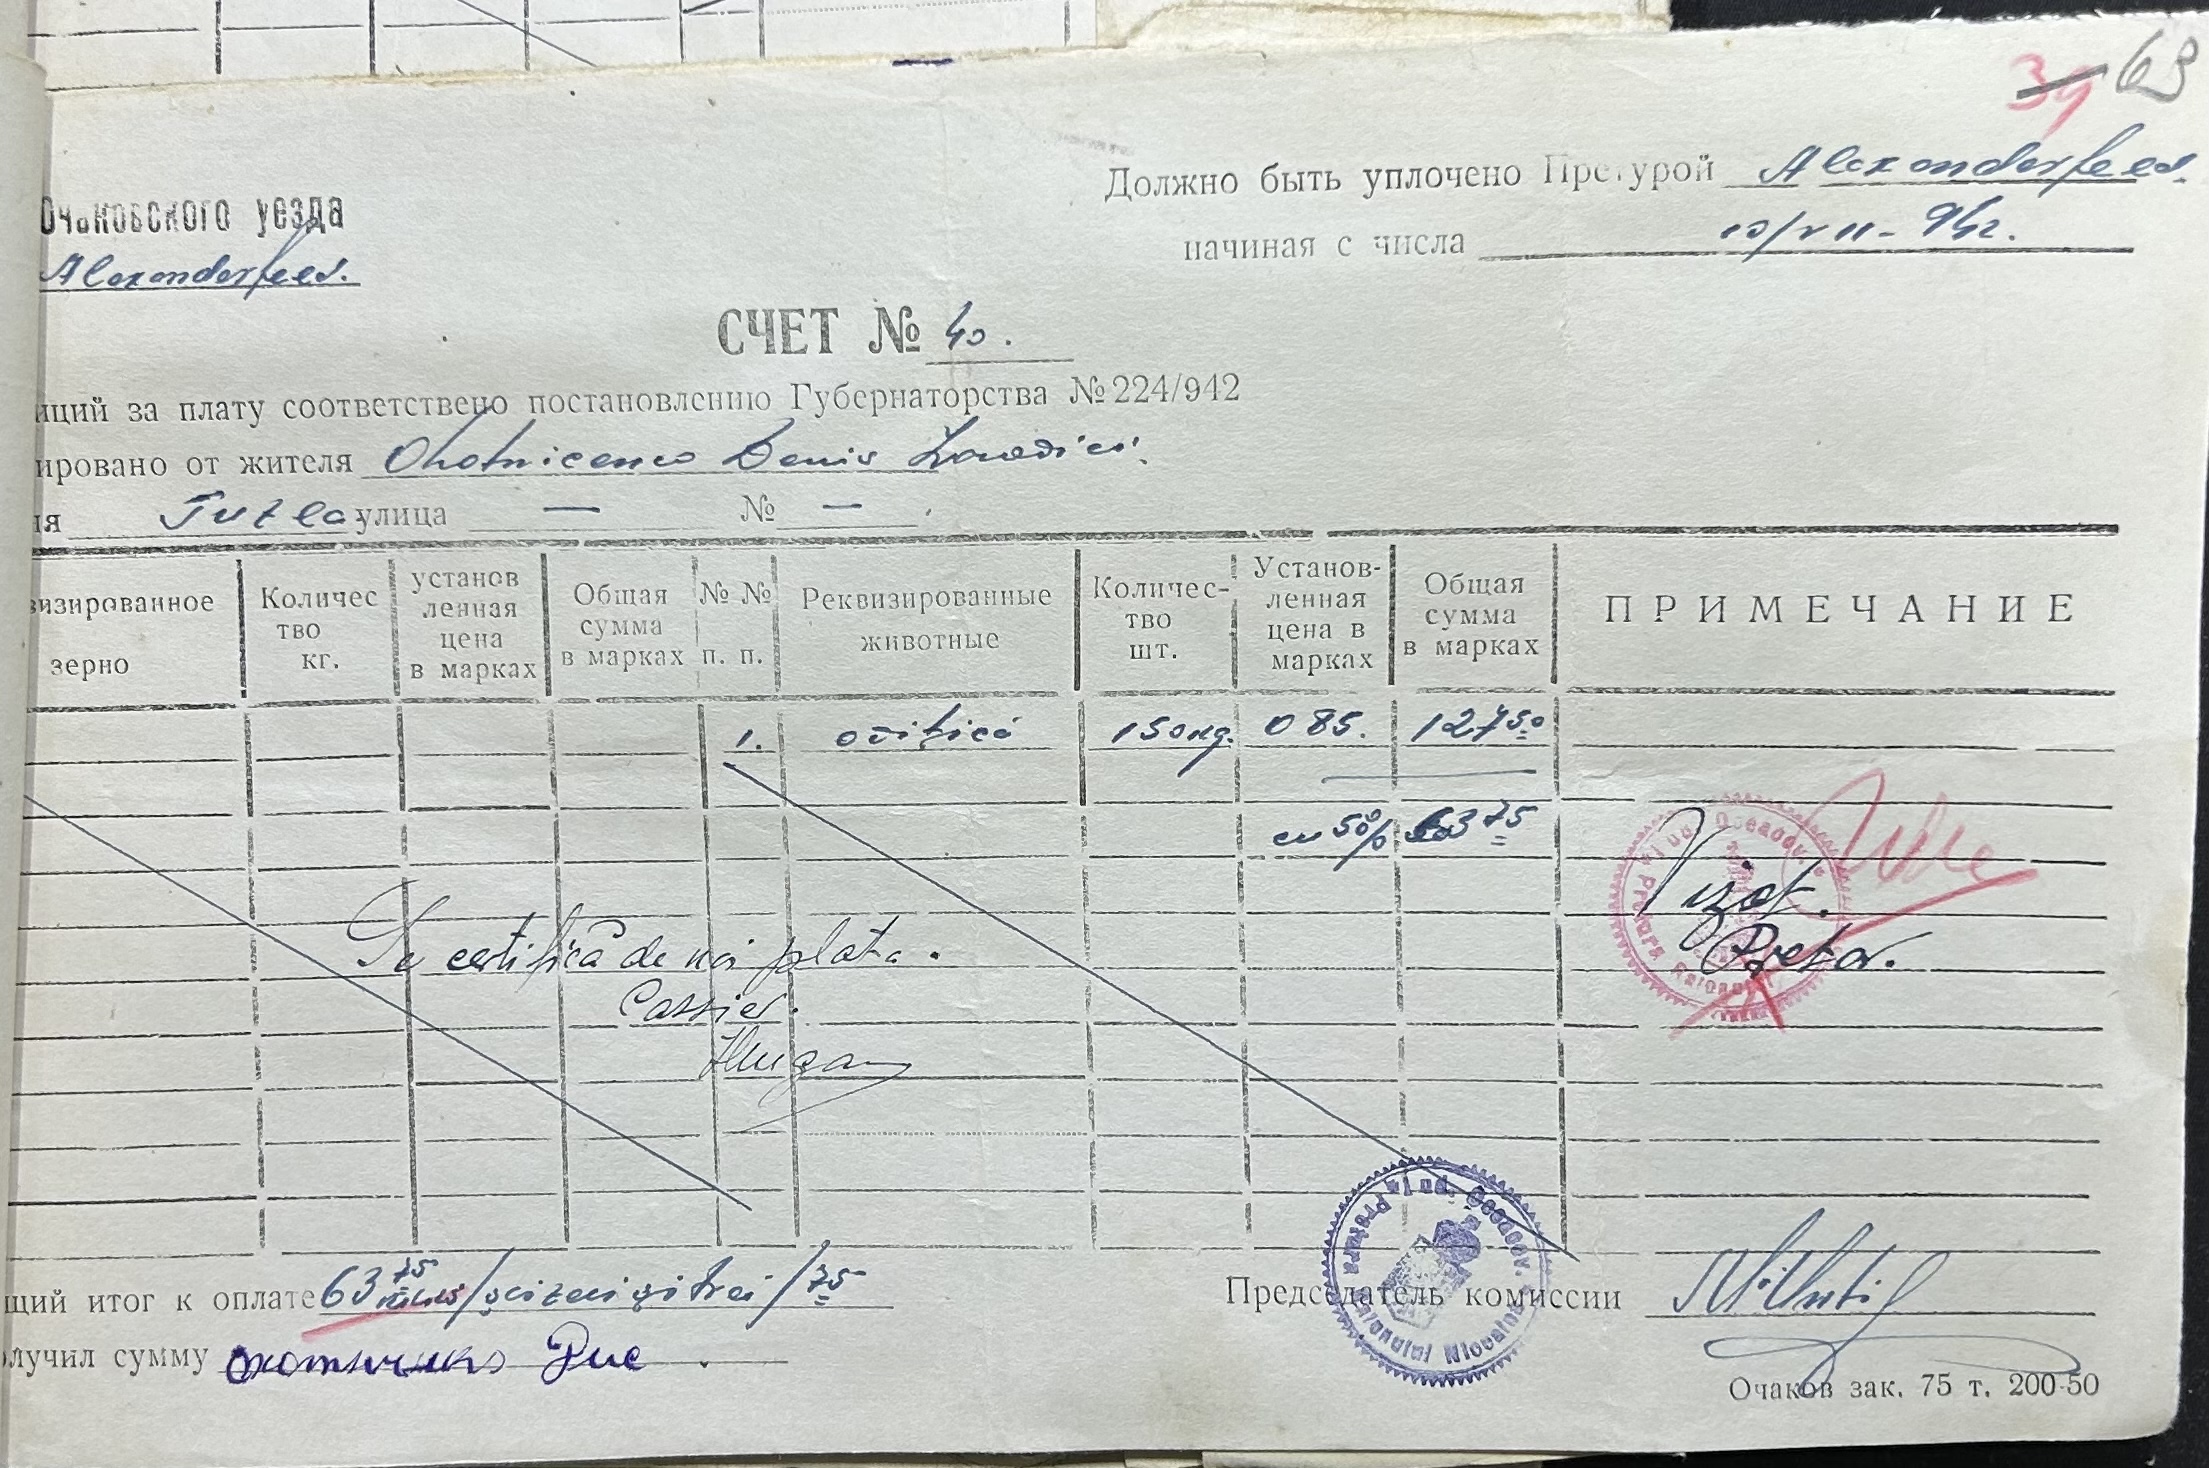 39 63
Должно быть уплочено Претурой Alexanderfeld.
Очаковского уезда
начиная с числа 10/VII-942.
Alexanderfeld.
СЧЕТ № 40.
иций за плату соответствено постановлению Губернаторства № 224/942
ировано от жителя Ohotnicenco Denis
ия Tuzla улица — № —
визированное зерно
Количес тво кг.
установ ленная цена в марках
Общая сумма в марках
№ № п. п.
Реквизированные животные
Количес- тво шт.
Установ- ленная цена в марках
Общая сумма в марках
ПРИМЕЧАНИЕ
1. 150 kg. 0 85. 127 50
cu 50% 63 75
Vizat.
Pretor.
Se certifică de noi plata.
Cassier.
Pretura Raionului Jud. Oceacov.
щий итог к оплате 63 75 /șaizeci și trei/ 75
Председатель комиссии
олучил сумму
Очаков зак. 75 т. 200-50